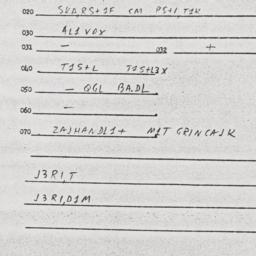 020 SVD,RS+1F CM PS+1,T1K
030 AL1VDX
031 — 032 +
040 T1S+L T1S+L3X
050 — QGL BA.DL
060 —
070 ZAJHANDL1+ M1T GRINCAJK
J3R1,T
J3R1,D1M